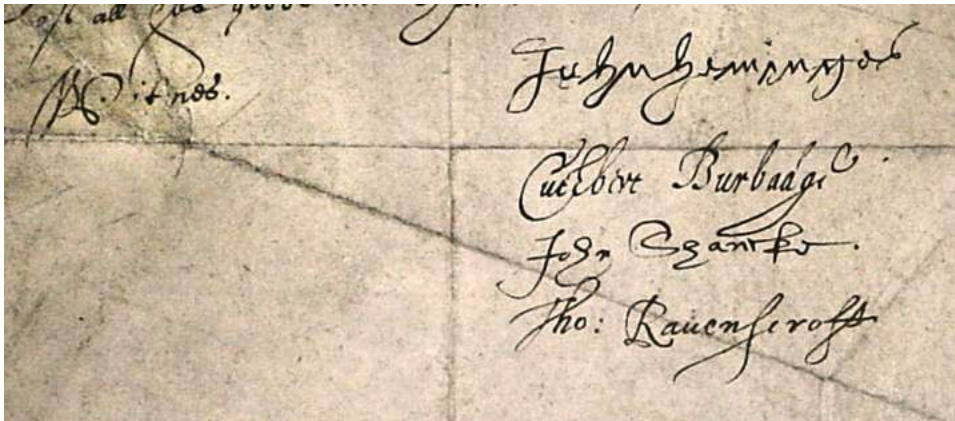 all his goods
Witnes.
John heminges
Cuthbert Burbadge
John Shancke.
Tho: Rauenscroft